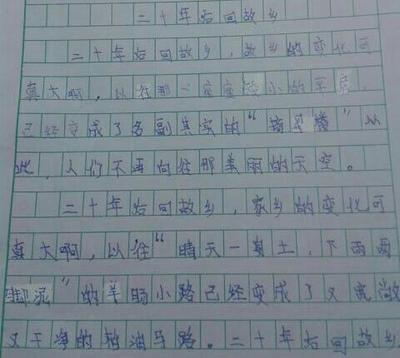 二十年后回故乡
二十年后回故乡，故乡的变化可
真大啊，以往那一座座矮小的平房，
已经变成了名副其实的“摘星楼”从
此，人们不再向往那美丽的天空。
二十年后回故乡，家乡的变化可
真大啊，以往“晴天一身土，下雨两
脚泥”的羊肠小路已经变成了又宽敞
又干净的柏油马路。二十年后回故乡